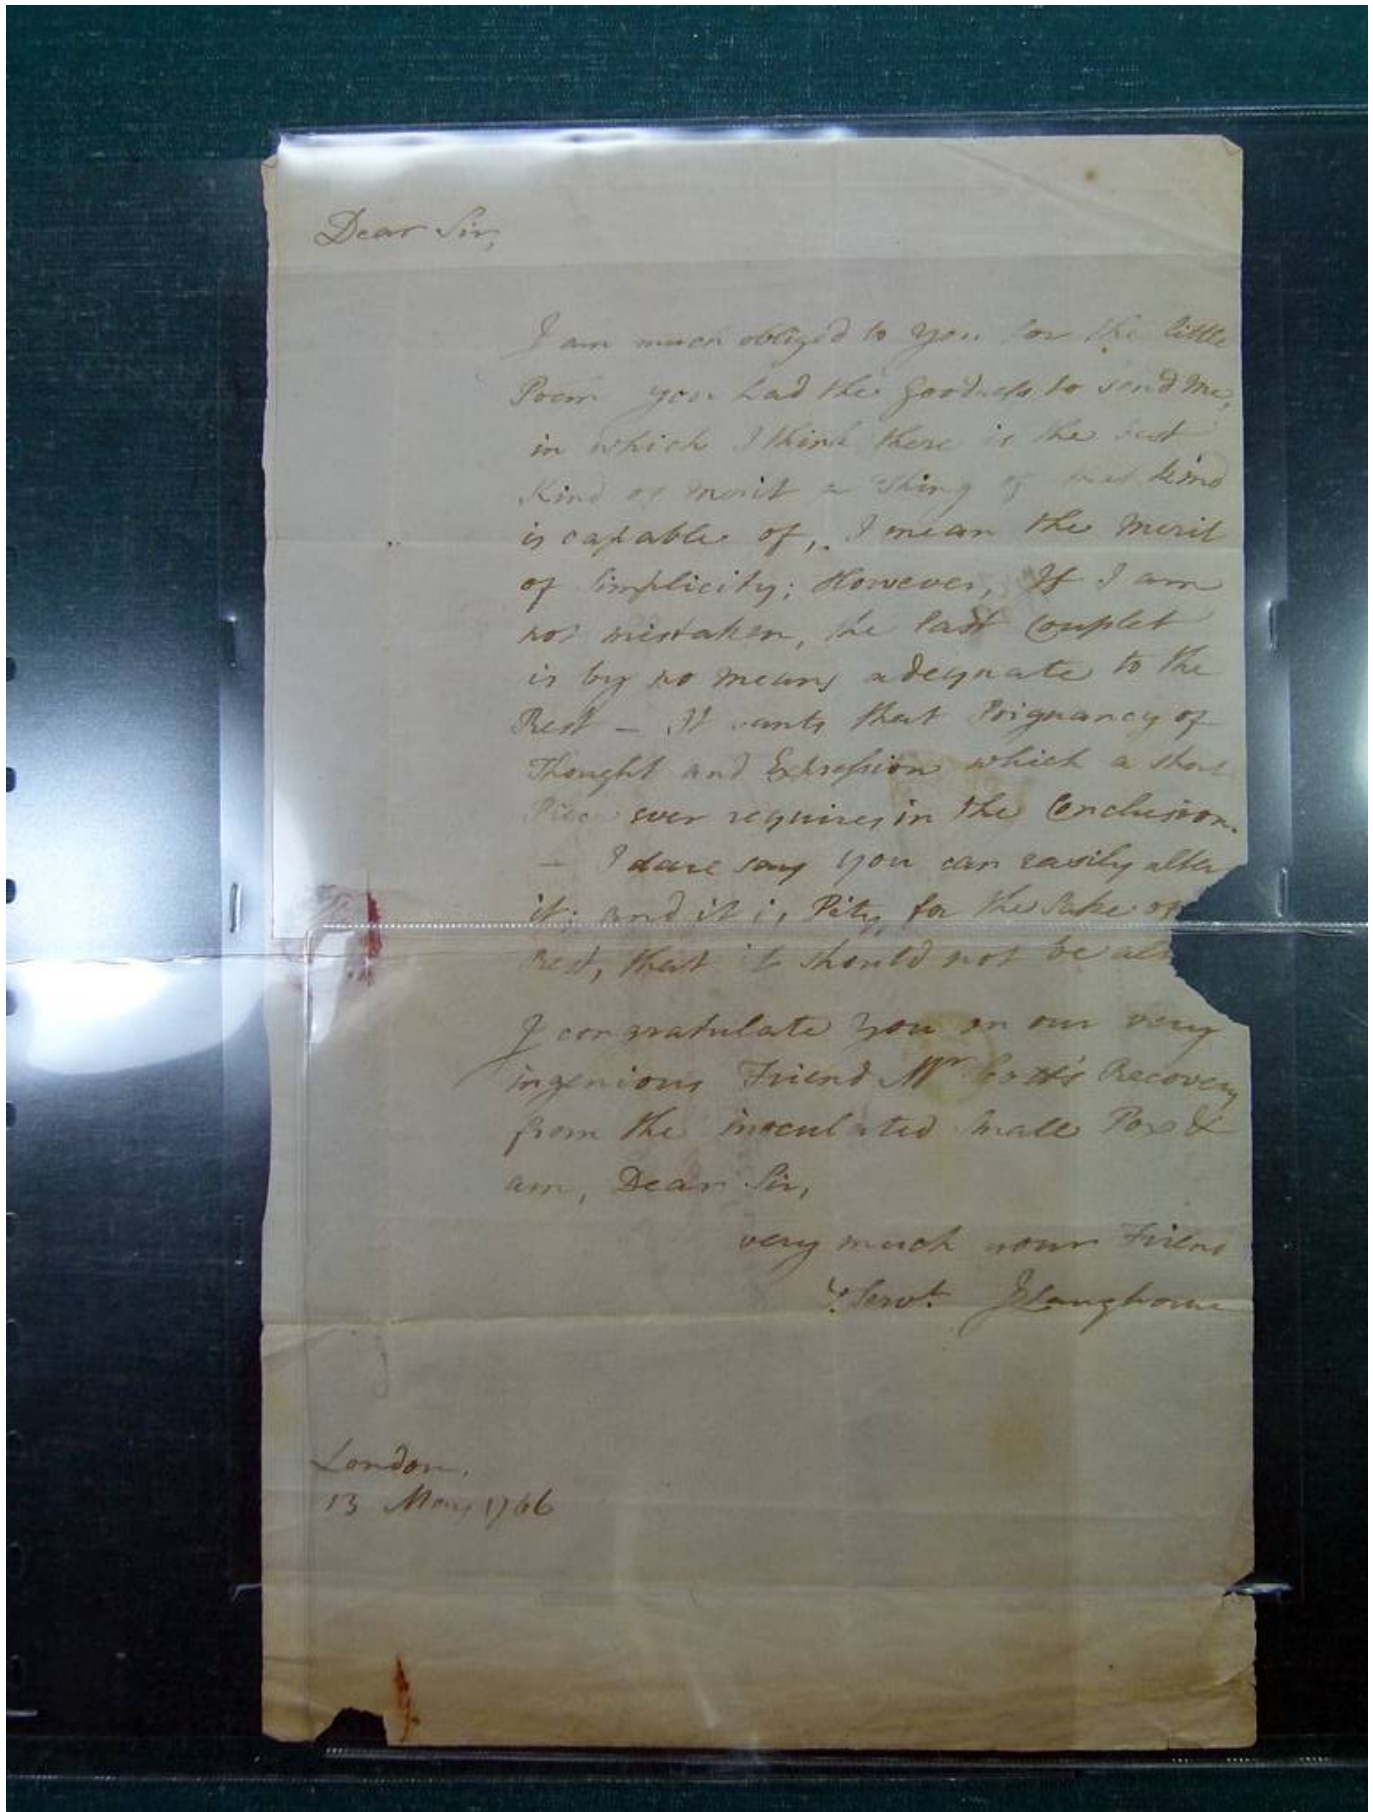 Dear Sir,
I am much obliged to you for the little
Poem you had the Goodness to send me,
in which I think there is the best
Kind of merit a Thing of that kind
is capable of, I mean the Merit
of Simplicity; However, If I am
not mistaken, the last Couplet
is by no means adequate to the
Rest – It wants that Poignancy of
Thought and Expression which a short
Piece ever requires in the Conclusion.
– I dare say you can easily alter
it; and it is Pity, for the Sake of
Rest, that it should not be
I congratulate you on our very
ingenious Friend Mr Scott's Recovery
from the inoculated Small Pox &
am, Dear Sir,
very much your Friend
& Servt. J Langhorne
London,
13 May 1766